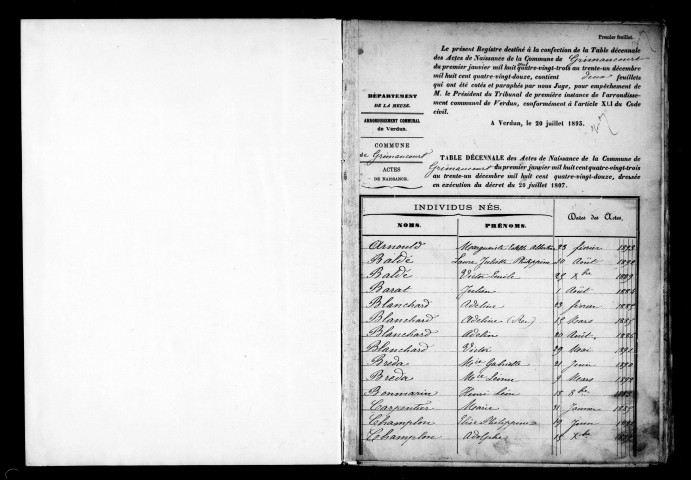 Premier feuillet.
Le présent Registre destiné à la confection de la Table décennale
des Actes de Naissance de la Commune de Grimaucourt
du premier janvier mil huit quatre-vingt-trois au trente-un décembre
mil huit cent quatre-vingt-douze, contient deux feuillets
qui ont été cotés et paraphés par nous Juge, pour empêchement de
M. le Président du Tribunal de première instance de l'arrondisse-
ment communal de Verdun, conformément à l'article XLI du Code
civil.
A Verdun, le 20 juillet 1893.
DÉPARTEMENT
DE LA MEUSE.
ARRONDISSEMENT COMMUNAL
de Verdun.
COMMUNE
de Grimaucourt
ACTES
DE NAISSANCE.
TABLE DÉCENNALE des Actes de Naissance de la Commune de
Grimaucourt du premier janvier mil huit cent quatre-vingt-trois
au trente-un décembre mil huit cent quatre-vingt-douze, dressée
en exécution du décret du 20 juillet 1807.
INDIVIDUS NÉS.
Dates des Actes.
NOMS. PRÉNOMS.
Arnould Marguerite 23 février
Baldé Laure Juliette Philippine Août
Baldé Victor Emile Xbre
Barat Julien Août
Blanchard Adeline 23 février
Blanchard Adeline Mars
Blanchard Adelin 20 Août
Blanchard Victor 29 Mai
Bréda Mie Gabrielle 21 Juin
Bréda Mie 9 Mars
Bommarin Henri Léon 15 8bre
Carpentier Marie 21 Janvier
Champlon Elise Philippine 19 Juin
Champlon Adolphe Xbre